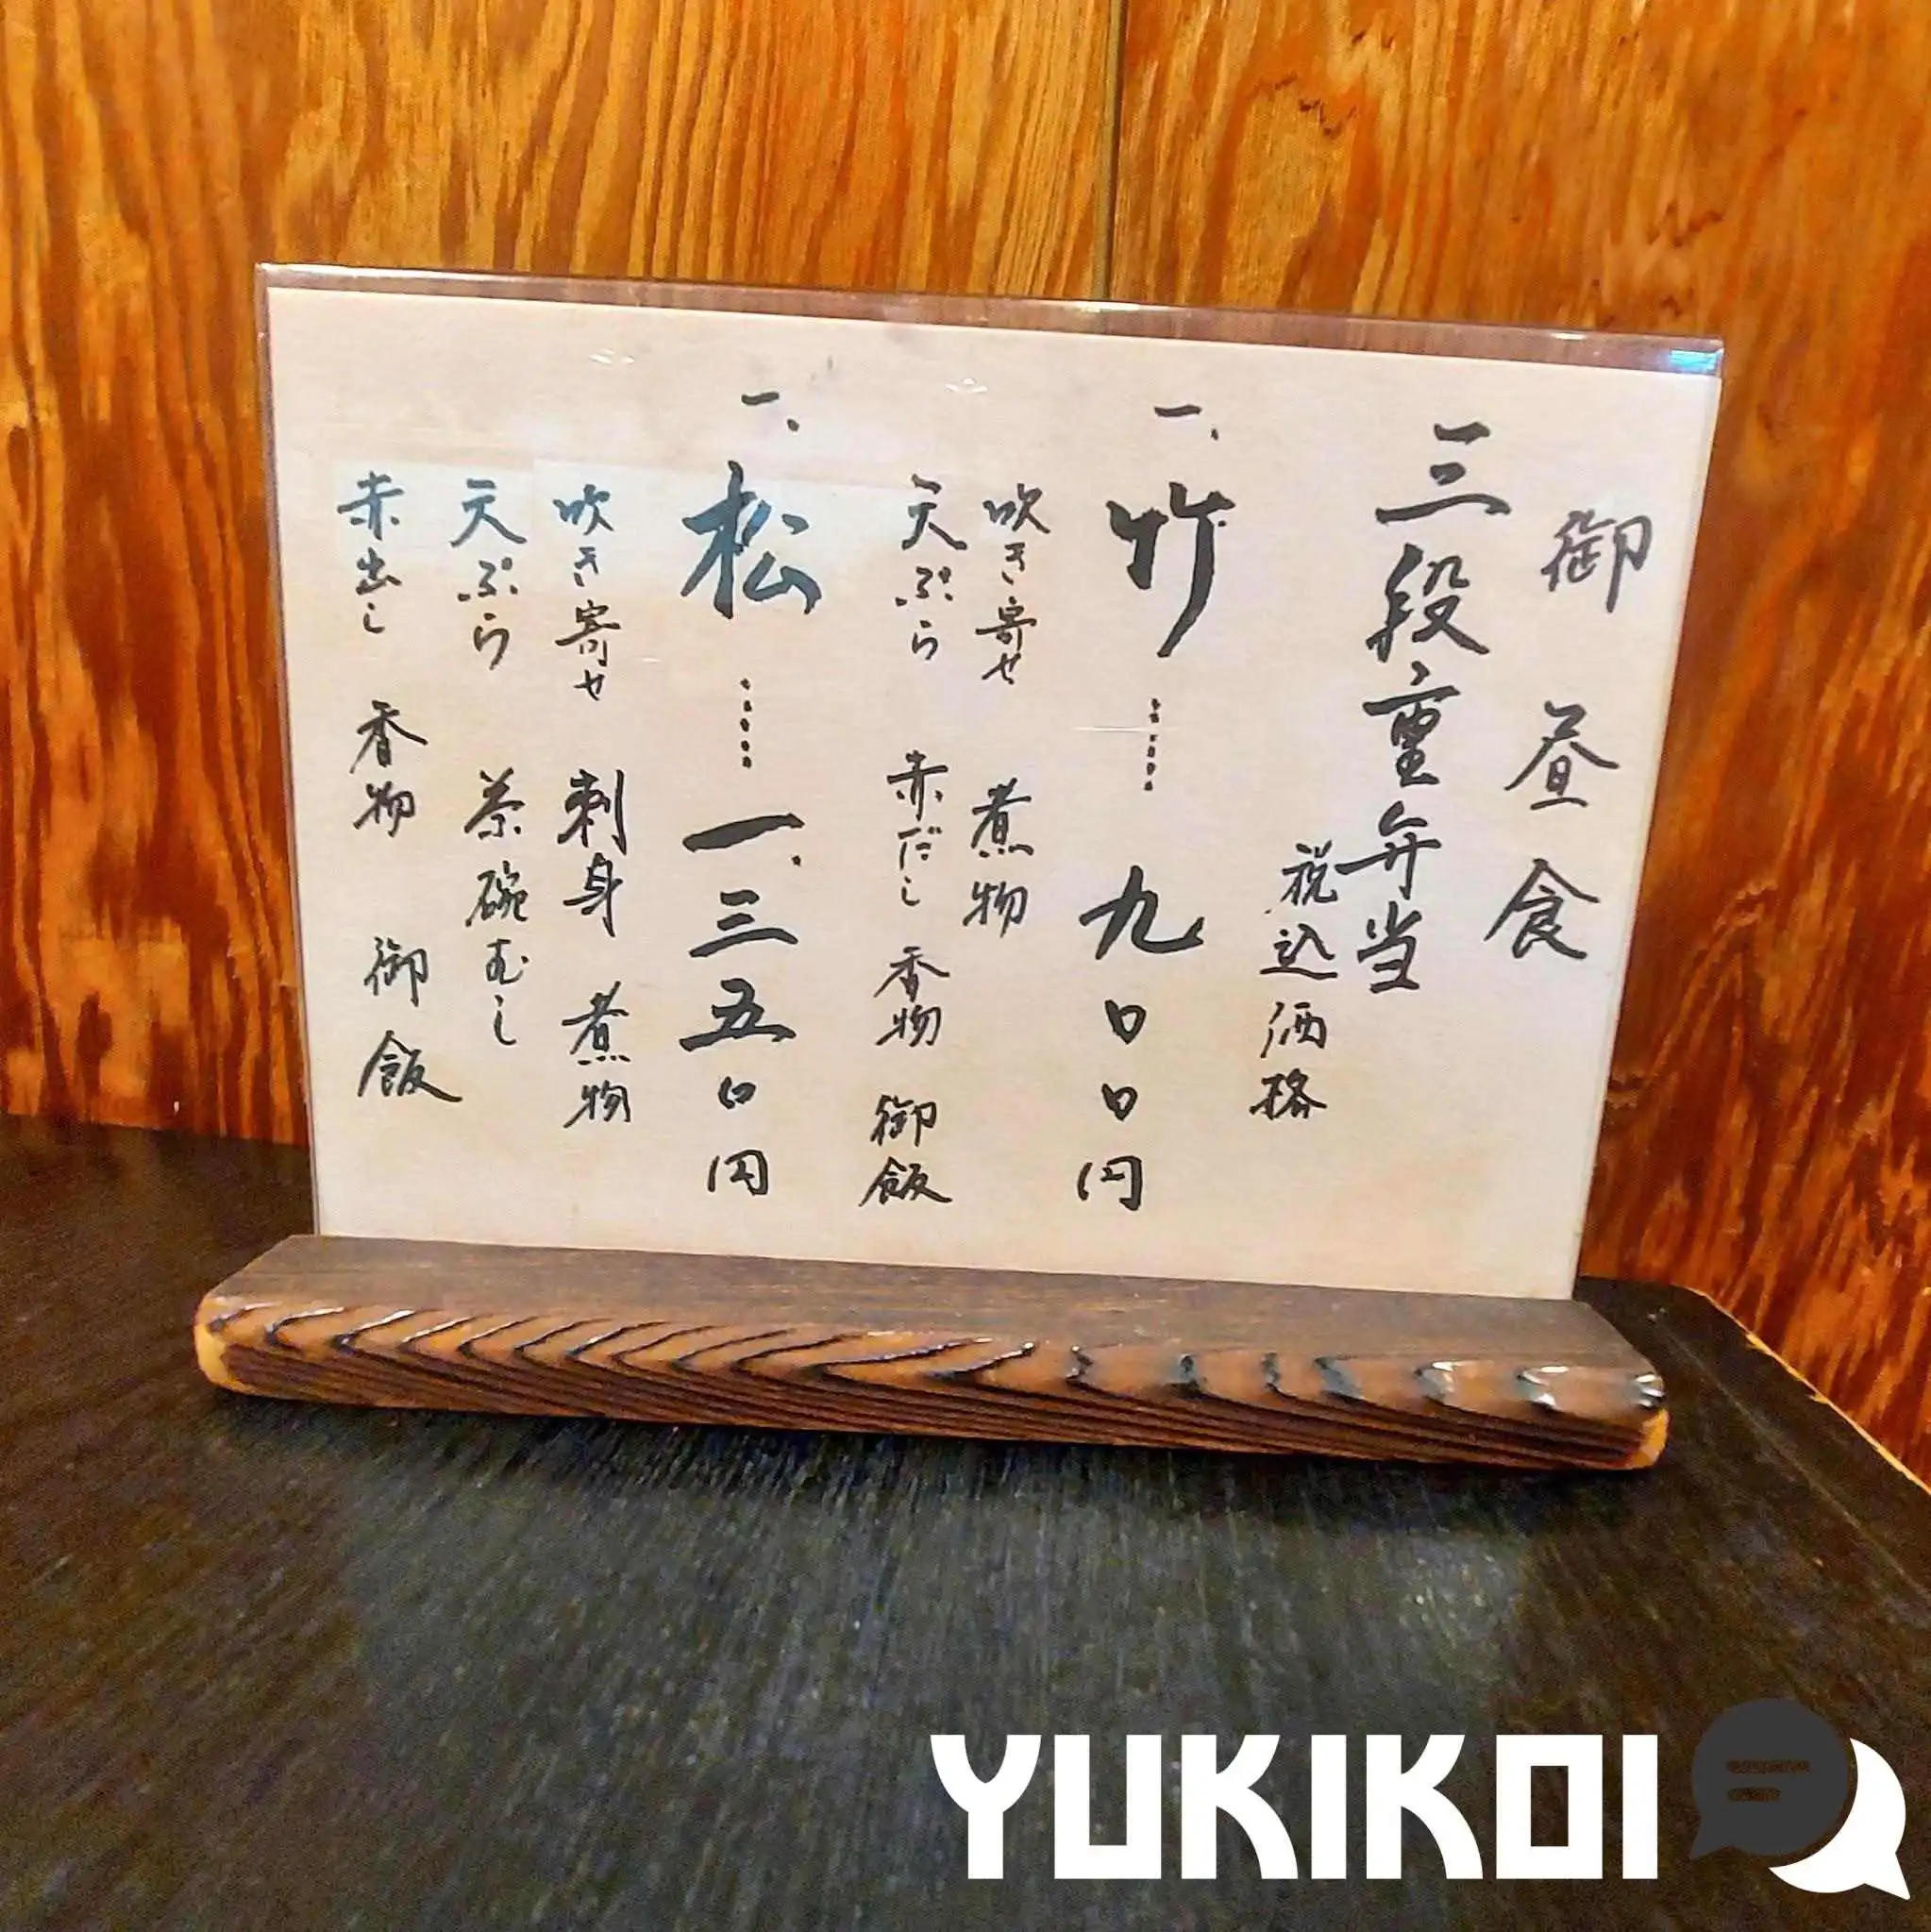 御昼食
三段重弁当
税込価格
一、竹……九〇〇円
吹き寄せ 煮物
天ぷら 赤だし 香物 御飯
一、松……一、三五〇円
吹き寄せ 刺身 煮物
天ぷら 茶碗むし
赤出し 香物 御飯
YUKIKOI